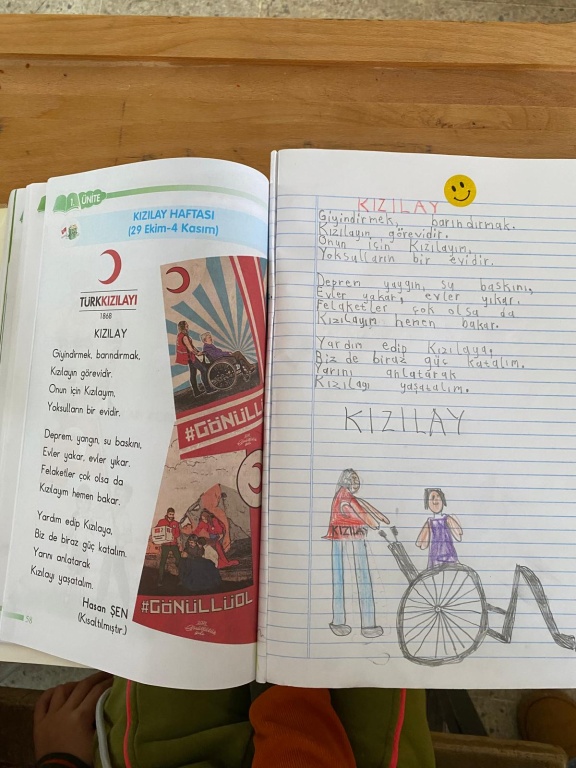 1. ÜNİTE
KIZILAY HAFTASI
(29 Ekim-4 Kasım)
TÜRKKIZILAYI
1868
KIZILAY
Giyindirmek, barındırmak,
Kızılayın görevidir.
Onun için Kızılayım,
Yoksulların bir evidir.
Deprem, yangın, su baskını,
Evler yakar, evler yıkar.
Felaketler çok olsa da
Kızılayım hemen bakar.
Yardım edip Kızılaya,
Biz de biraz güç katalım.
Yarını anlatarak
Kızılayı yaşatalım.
Hasan ŞEN
(Kısaltılmıştır.)
58
#GÖNÜLL
#GÖNÜLLÜOL
KIZILAY
Giyindirmek, barındırmak.
Kızılayın görevidir.
Onun için Kızılayım,
Yoksulların bir evidir.
Deprem yaygın, su baskını,
Evler yakar, evler yıkar.
Felaketler çok olsa da
Kızılayım hemen bakar.
Yardım edip Kızılaya,
Biz de biraz güç katalım.
Yarını anlatarak
Kızılayı yaşatalım.
KIZILAY
KIZILAY